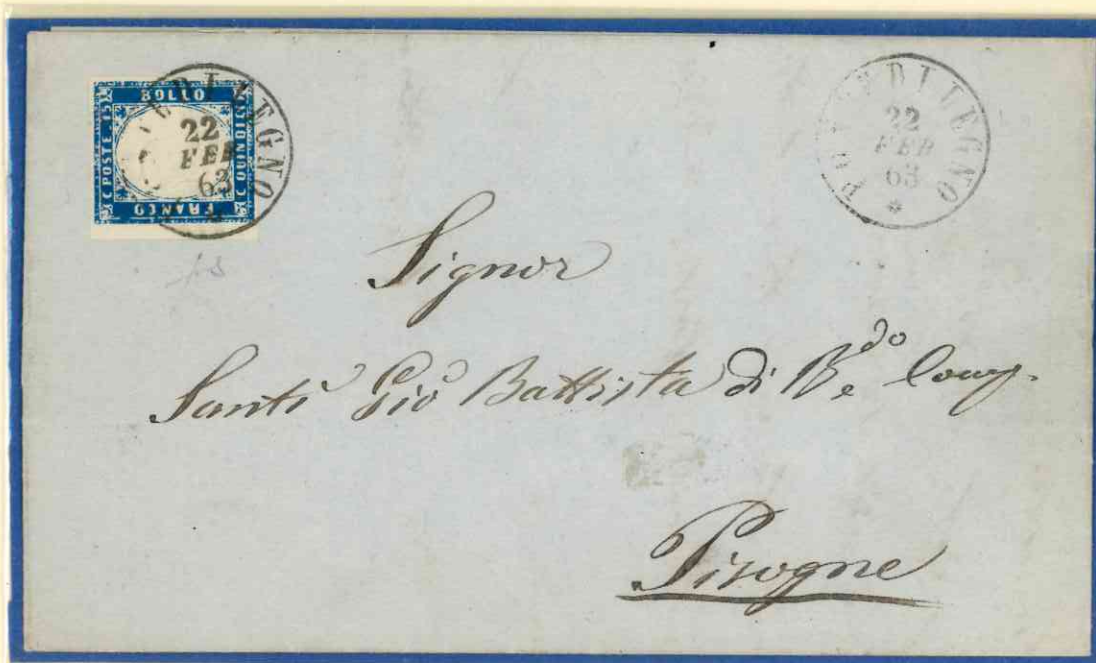 BOLLO
C POSTE 15
C QUINDICI
FRANCO
22
FEB
63
PONTE DI LEGNO
22
FEB
63
*
Signor
Santi Gio Battista di B.do e Comp.
Pisogne